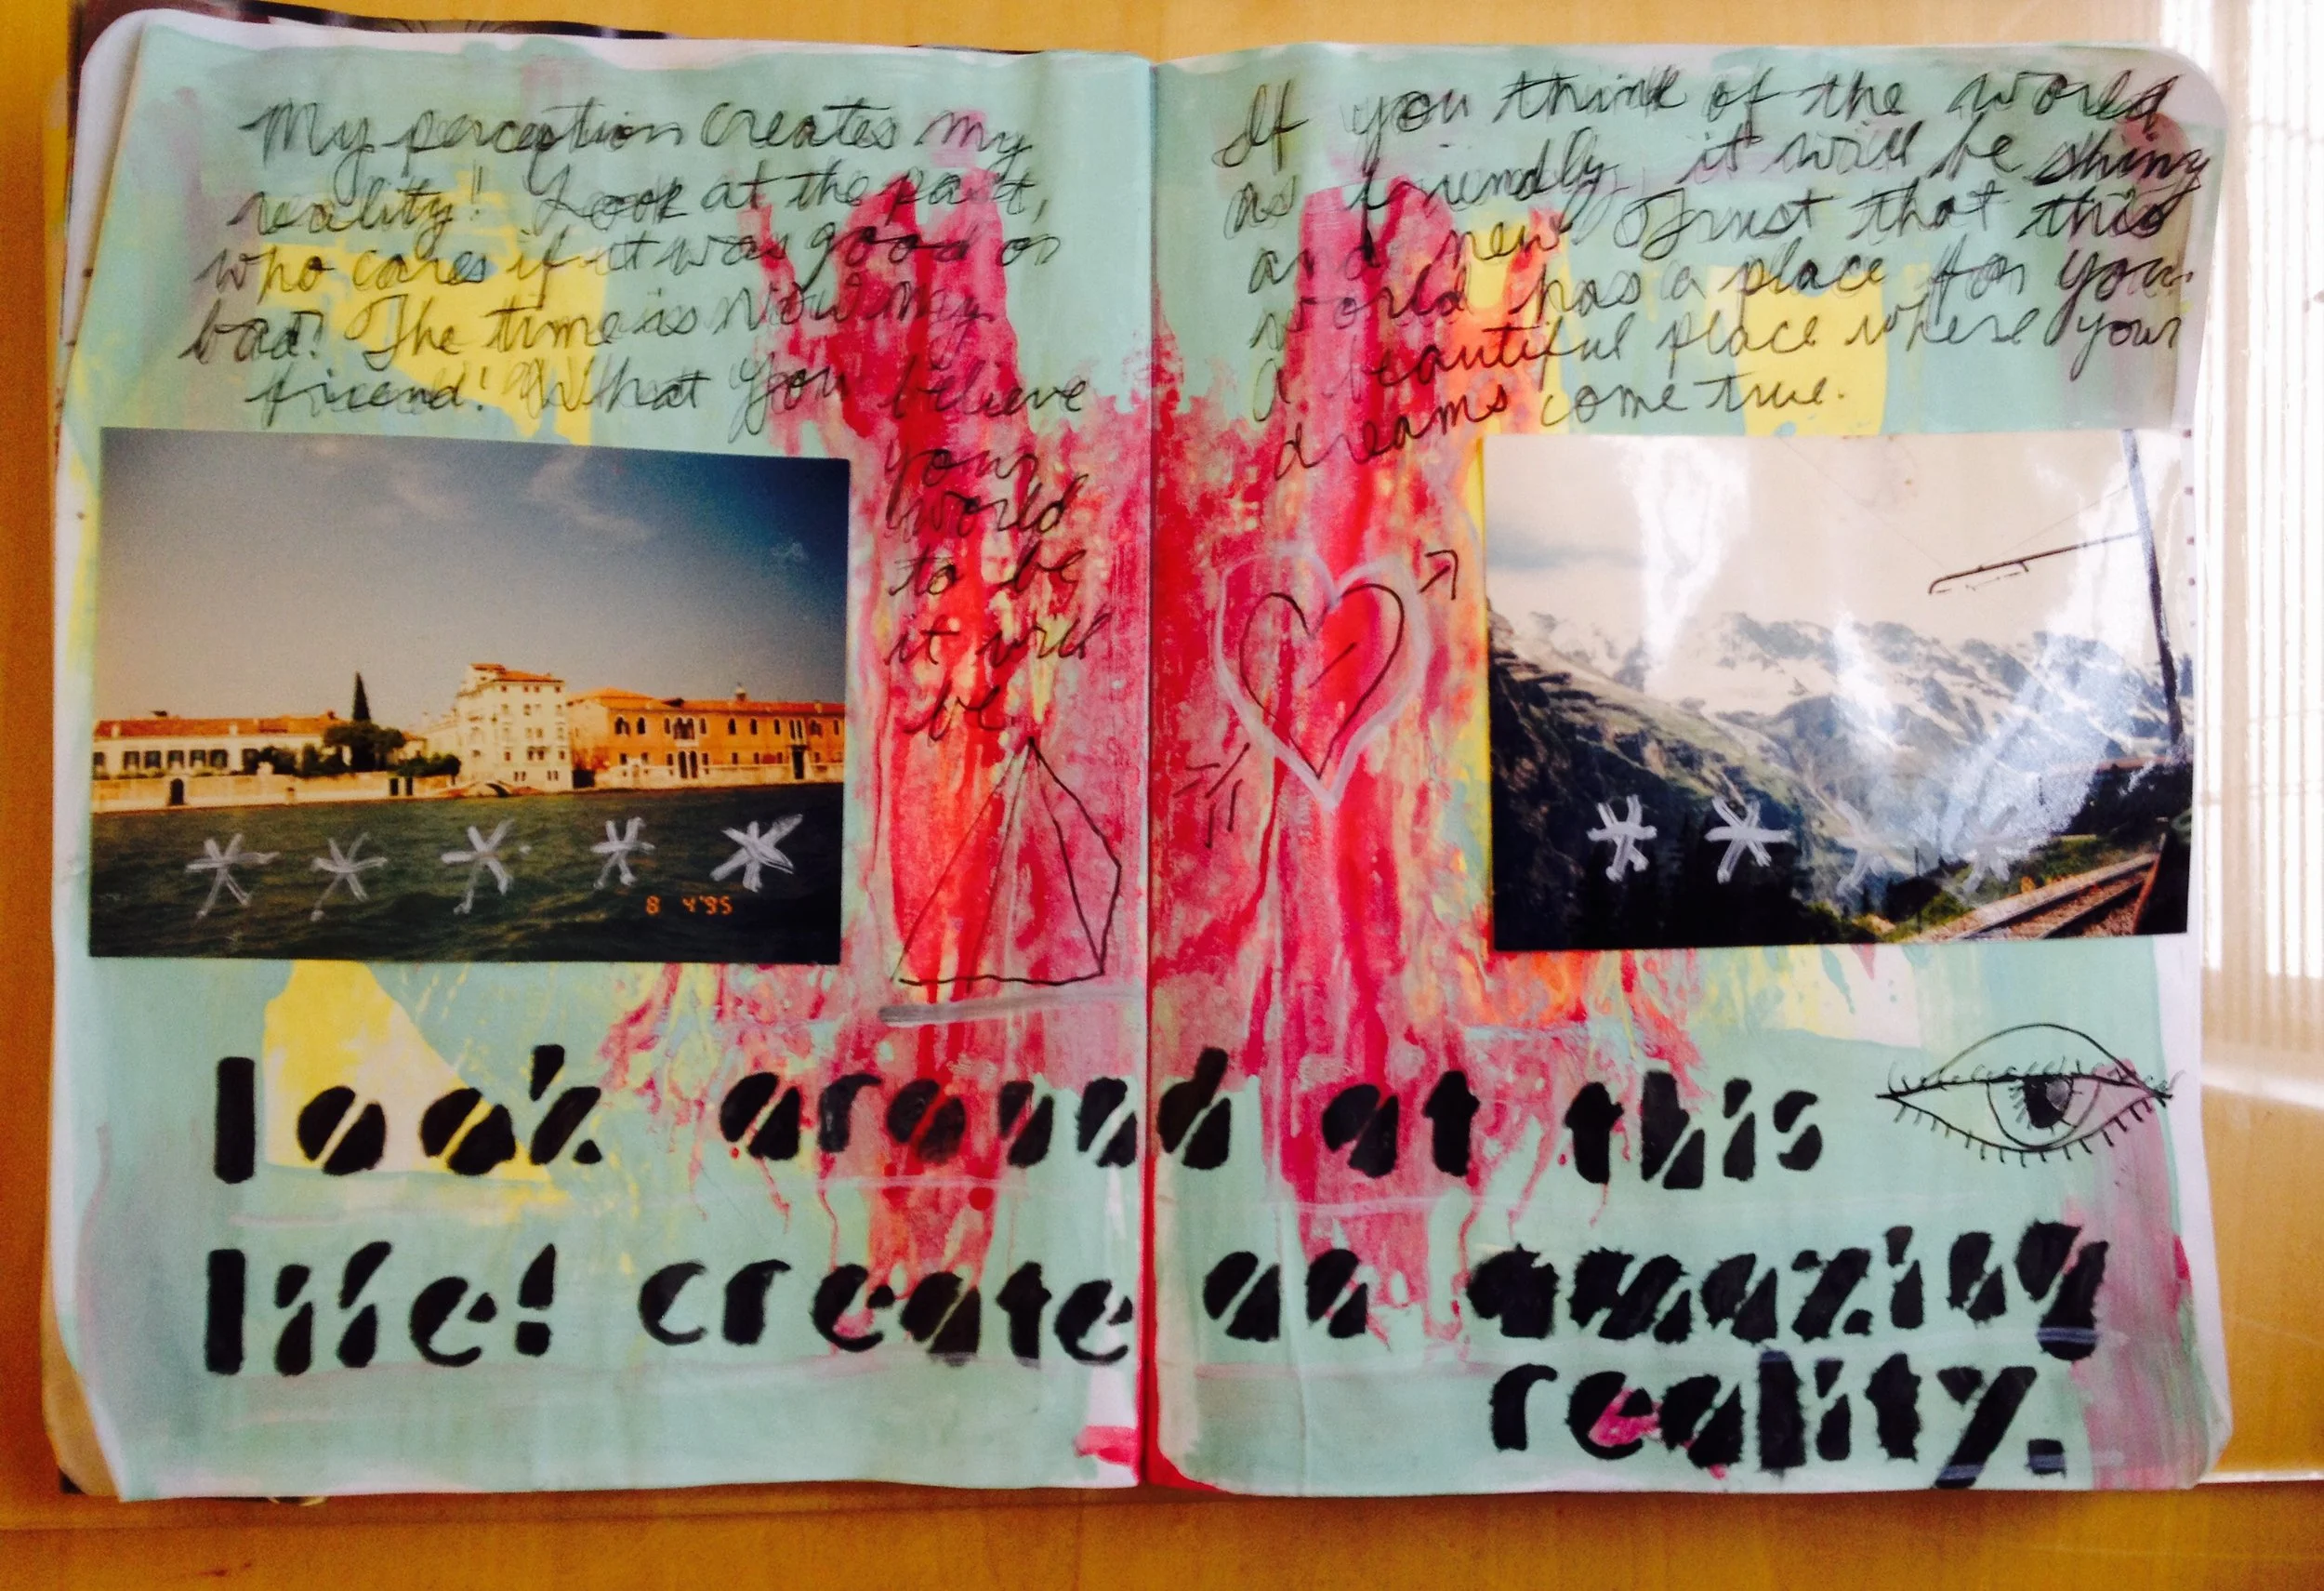 My perception creates my
reality! Look at the past,
who cares if it was good or
bad! The time is Now my
friend! What you believe
your
world
to be
it will
be
If you think of the world
as friendly, it will be shiny
and new! Trust that this
world has a place for you
a beautiful place where your
dreams come true.
8 4'95
look around at this
life! create an amazing
reality.